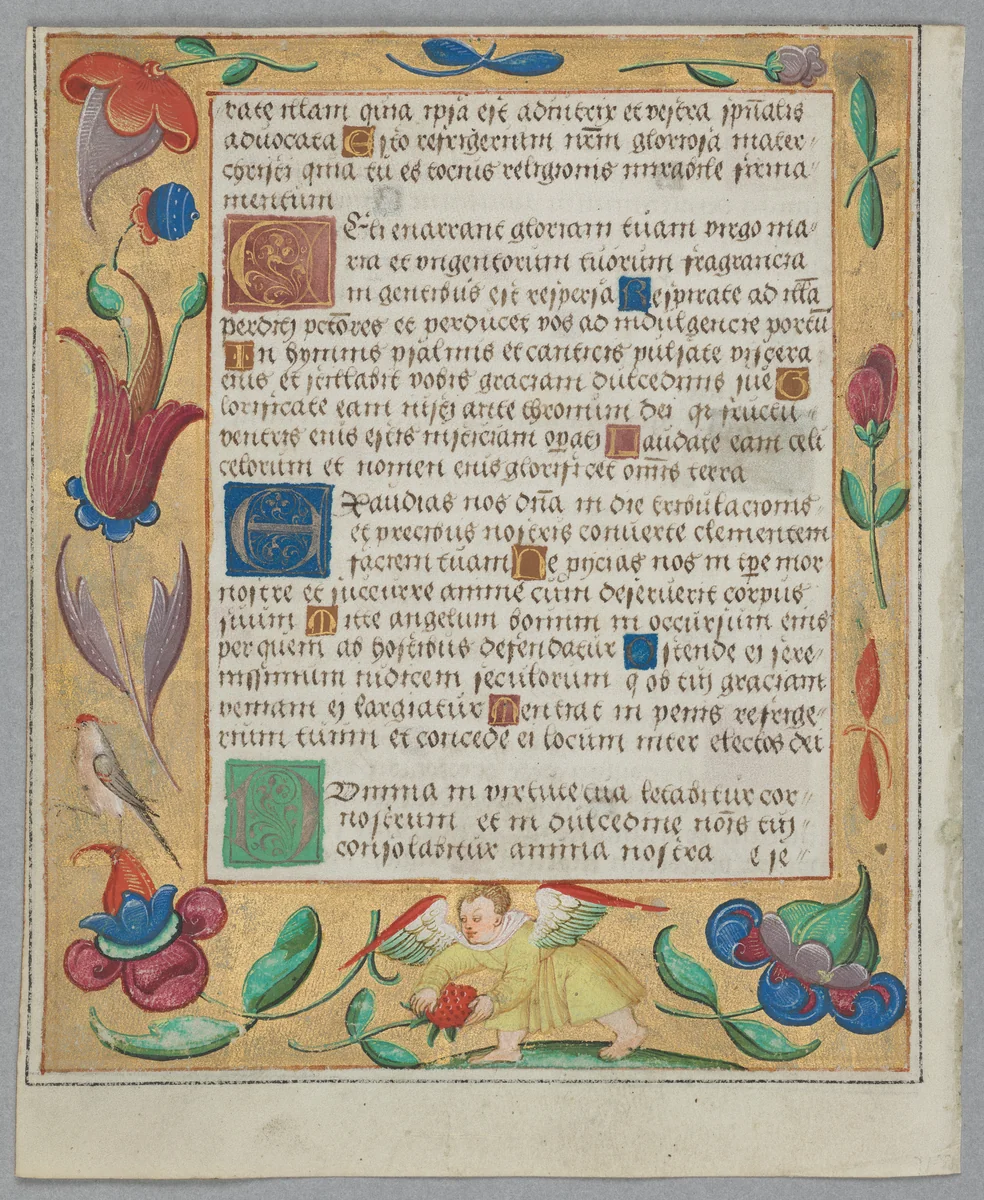 rate illam quia ipsa est adiutrix et vestra sp̄ualis
aduocata Esto refrigerium nr̄m gloriosa mater
christi quia tu es tocius religionis mirabile firma
mentum
Celi enarrant gloriam tuam virgo ma
ria et vngentorum tuorum fragrancia
in gentibus est respersa Respirate ad ill̄a
perditi pctōres et perducet vos ad indulgencie portū
In hymnis psalmis et canticis pulsate viscera
eius et stillabit vobis graciam dulcedinis sue G
lorificate eam iusti ante thronum dei qr fructu
ventris eius estis iusticiam opati Laudate eam celi
celorum et nomen eius glorificet omīs terra
Exaudias nos dn̄a in die tribulacionis
et precibus nostris conuerte clementem
faciem tuam Ne proicias nos in tp̄e mor
nostre et succurre anime cum deseruerit corpus
suum Mitte angelum bonum in occursum eius
per quem ab hostibus defendatur Ostende ei sere
nissimum iudicem seculorum q ob tui graciam
veniam ei largiatur Sentiat in penis refrige
rium tuum et concede ei locum inter electos dei
Domina in virtute tua letabitur cor
nostrum et in dulcedine nōis tui
consolabitur anima nostra